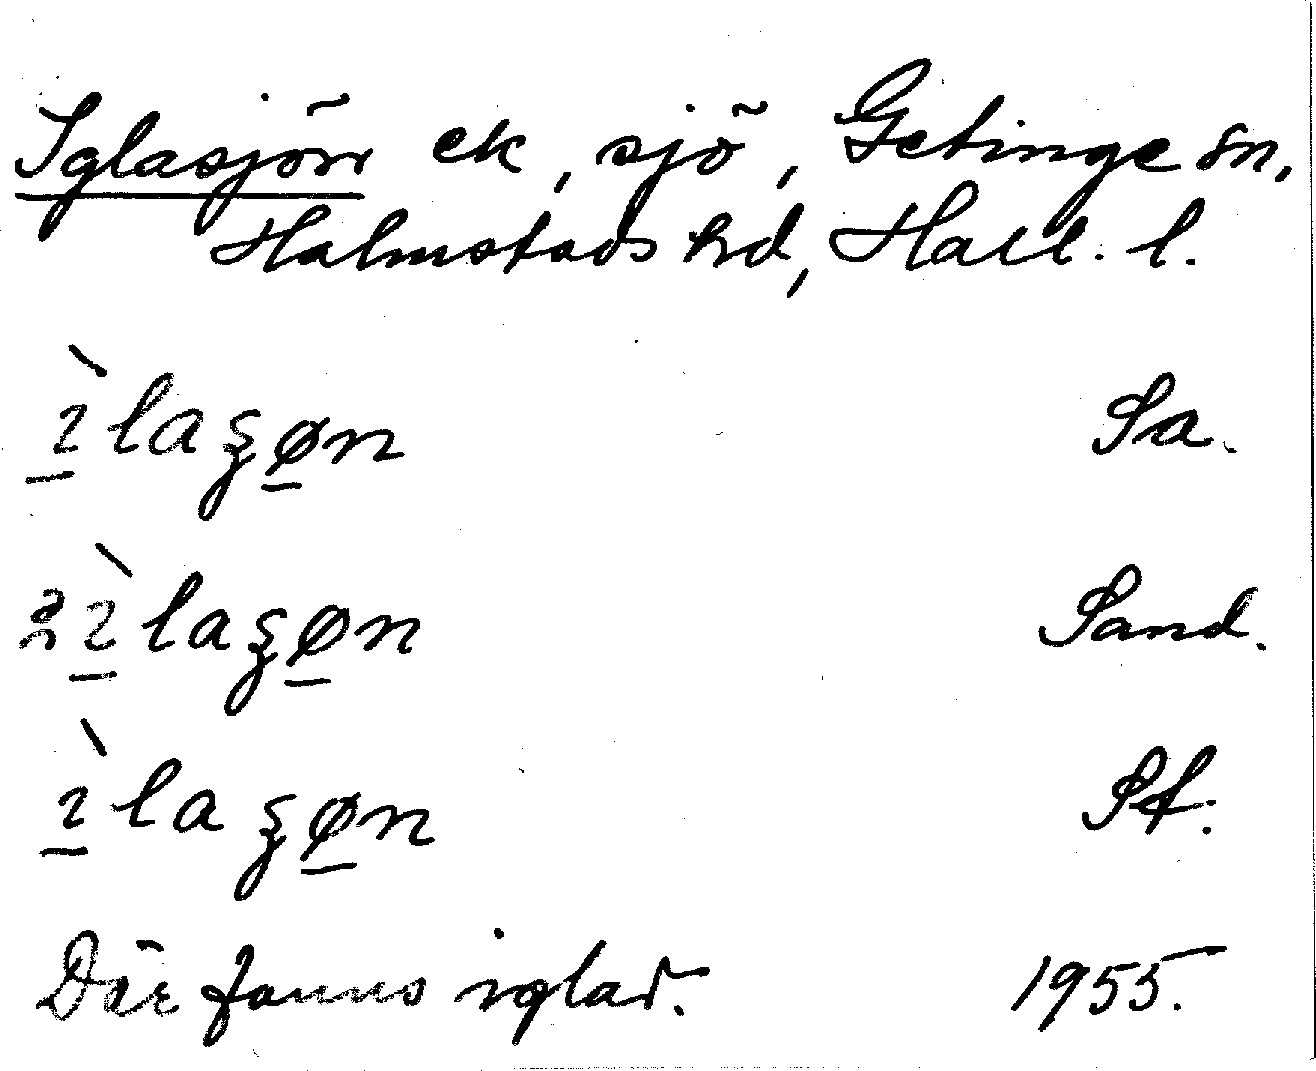 Iglasjön ek, sjö, Getinge sn,
Halmstads hd, Hall. l.
ı̲̀laʒø̲n Sa.
ı̲̀laʒø̲n Sand.
ı̲̀laʒø̲n St.
Där fanns iglar. 1955.